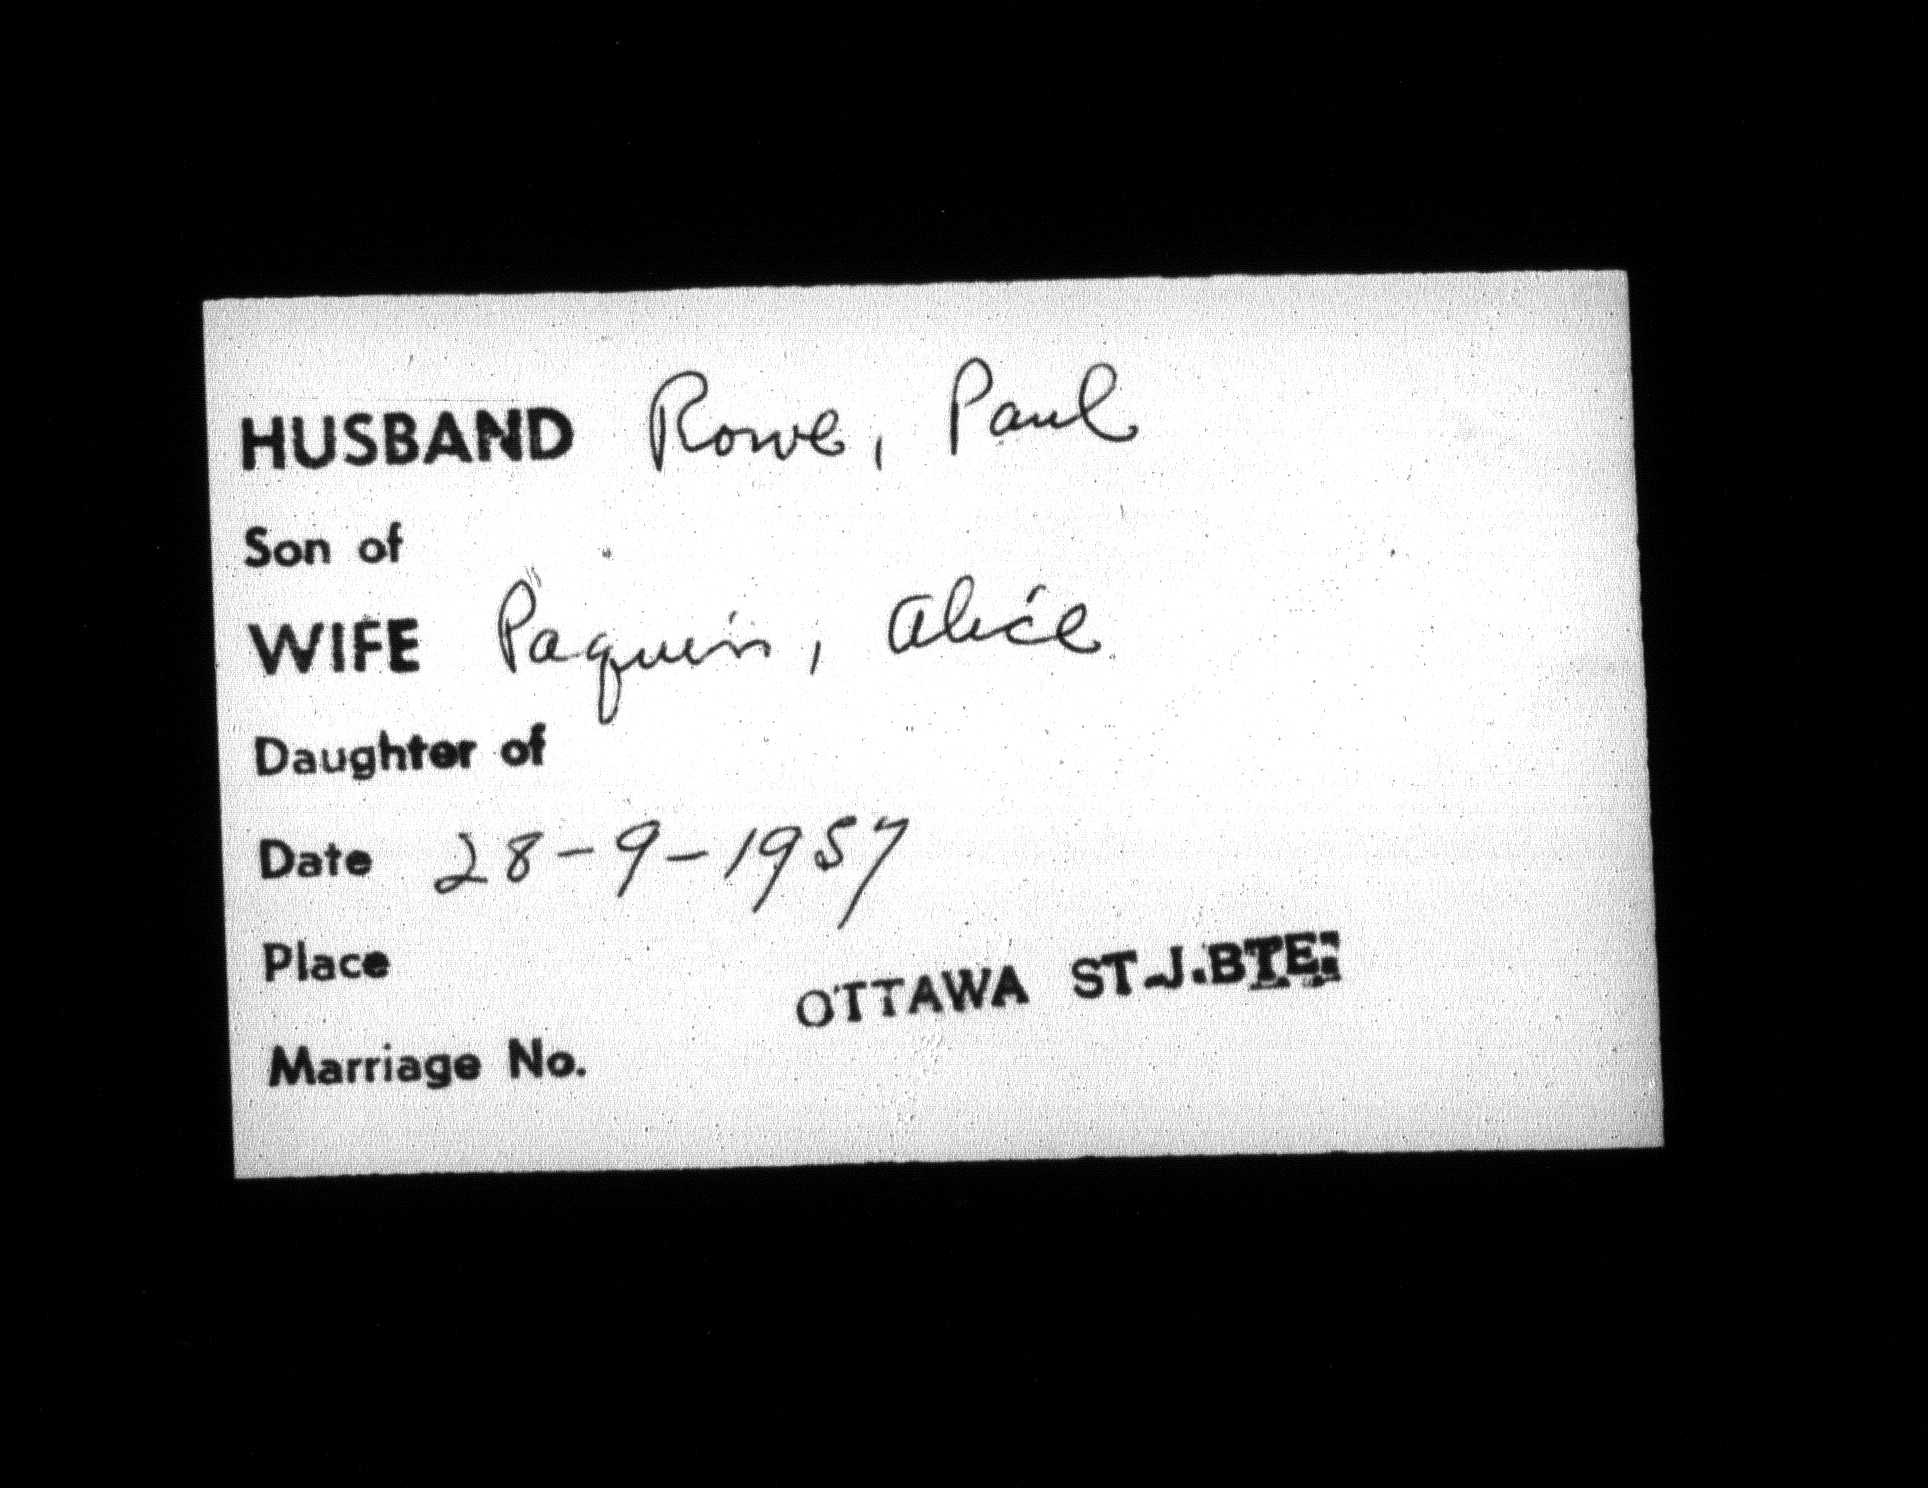 HUSBAND Rowe, Paul
Son of
WIFE Paquin, Alice
Daughter of
Date 28-9-1957
Place OTTAWA ST-J.BTE.
Marriage No.